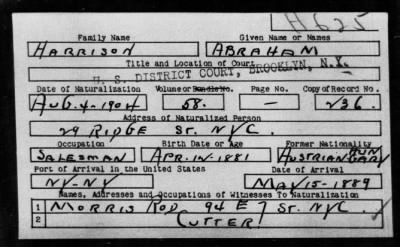 H625
Family Name Given Name or Names
HARRISON ABRAHAM
Title and Location of Court
U. S. DISTRICT COURT, BROOKLYN, N.Y.
Date of Naturalization Volume or Bundle No. Page No. Copy of Record No.
AUG. 4-1904 58. — 236.
Address of Naturalized Person
29 RIDGE ST. NYC.
Occupation Birth Date or Age Former Nationality
SALESMAN APR. 1881 AUSTRIAN HUNGARY
Port of Arrival in the United States Date of Arrival
NY-NY MAY 15-1889
Names, Addresses and Occupations of Witnesses To Naturalization
1 MORRIS ROD 94 E 7 ST. NYC.
2 CUTTER